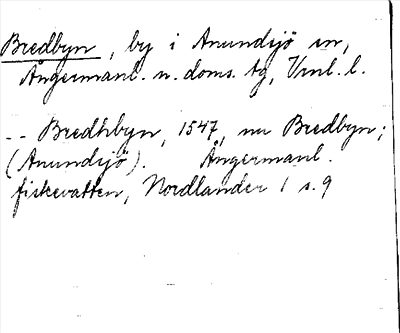 Bredbyn, by i Anundsjö sn,
Ångermanl. n. doms. tg, Vnl. l.
-- Bredhbyn, 1547, nu Bredbyn;
(Anundsjö). Ångermanl.
fiskevatten, Nordlander 1 s. 9